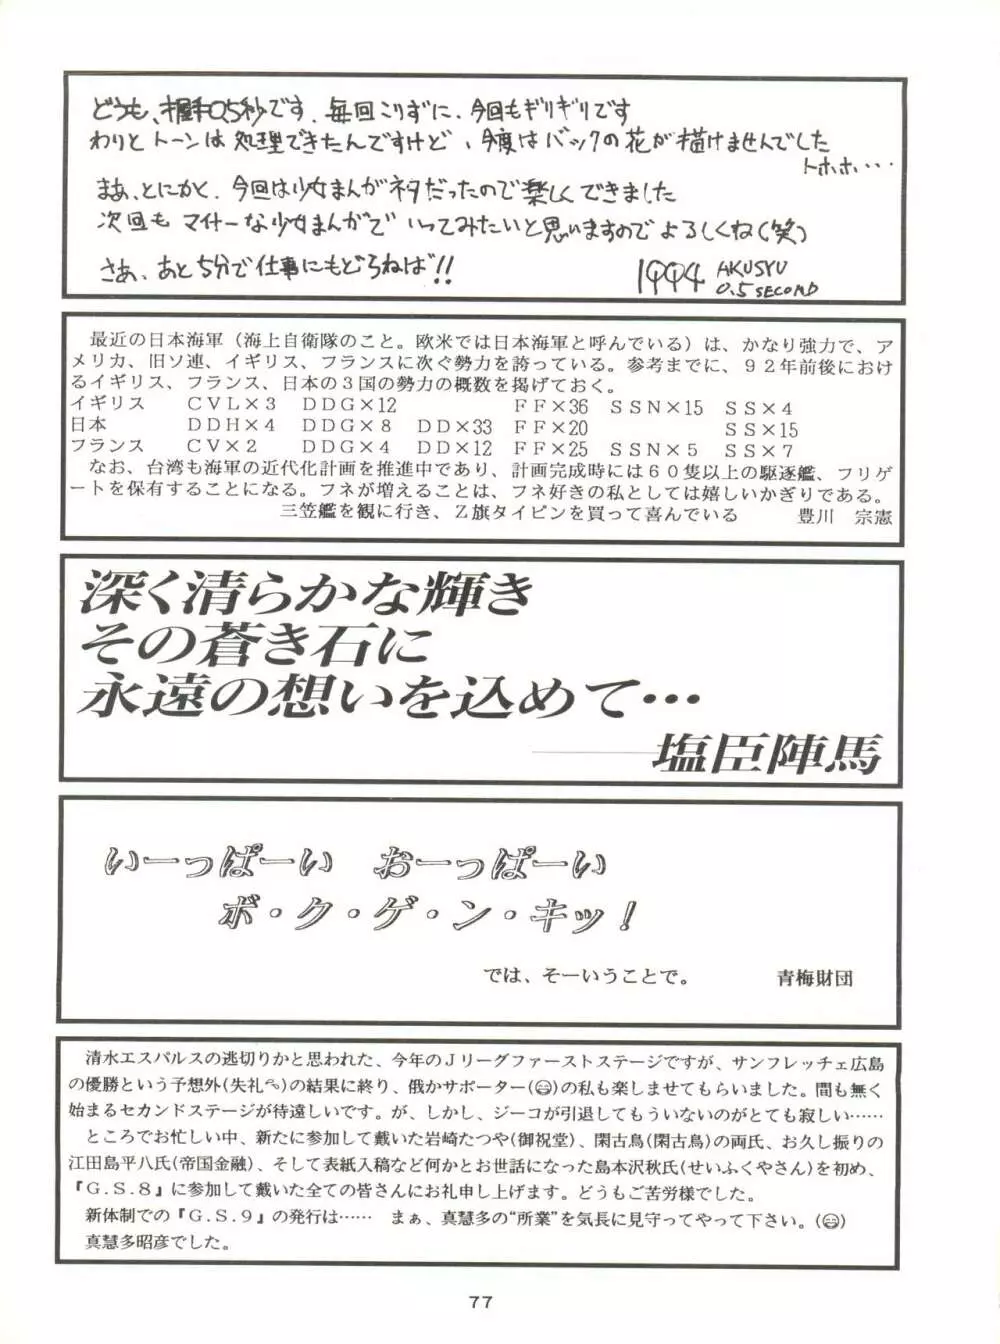 どうも、握手0.5秒です。毎回こりずに、今回もギリギリです
わりとトーンは処理できたんですけど、今度はバックの花が描けませんでした
トホホ・・・
まあ、とにかく、今回は少女まんがネタだったので楽しくできました
次回もマイナーな少女まんがでいってみたいと思いますのでよろしくね(笑)
さあ、あと5分で仕事にもどらねば!!
1994 AKUSYU
0.5 SECOND
最近の日本海軍(海上自衛隊のこと。欧米では日本海軍と呼んでいる)は、かなり強力で、ア
メリカ、旧ソ連、イギリス、フランスに次ぐ勢力を誇っている。参考までに、92年前後におけ
るイギリス、フランス、日本の3国の勢力の概数を掲げておく。
イギリス CVL×3 DDG×12 FF×36 SSN×15 SS×4
日本 DDH×4 DDG×8 DD×33 FF×20 SS×15
フランス CV×2 DDG×4 DD×12 FF×25 SSN×5 SS×7
なお、台湾も海軍の近代化計画を推進中であり、計画完成時には60隻以上の駆逐艦、フリゲ
ートを保有することになる。フネが増えることは、フネ好きの私としては嬉しいかぎりである。
三笠艦を観に行き、Z旗タイピンを買って喜んでいる 豊川 宗憲
深く清らかな輝き
その蒼き石に
永遠の想いを込めて…
――塩臣陣馬
いーっぱーい おーっぱーい
ボ・ク・ゲ・ン・キッ!
では、そーいうことで。 青梅財団
清水エスパルスの逃切りかと思われた、今年のJリーグファーストステージですが、サンフレッチェ広島
の優勝という予想外(失礼)の結果に終り、俄かサポーター()の私も楽しませてもらいました。間も無く
始まるセカンドステージが待遠しいです。が、しかし、ジーコが引退してもういないのがとても寂しい……
ところでお忙しい中、新たに参加して戴いた岩崎たつや(御祝堂)、閑古鳥(閑古鳥)の両氏、お久し振りの
江田島平八氏(帝国金融)、そして表紙入稿など何かとお世話になった島本沢秋氏(せいふくやさん)を初め、
『G.S.8』に参加して戴いた全ての皆さんにお礼申し上げます。どうもご苦労様でした。
新体制での『G.S.9』の発行は…… まぁ、真慧多の“所業”を気長に見守ってやって下さい。()
真慧多昭彦でした。
77